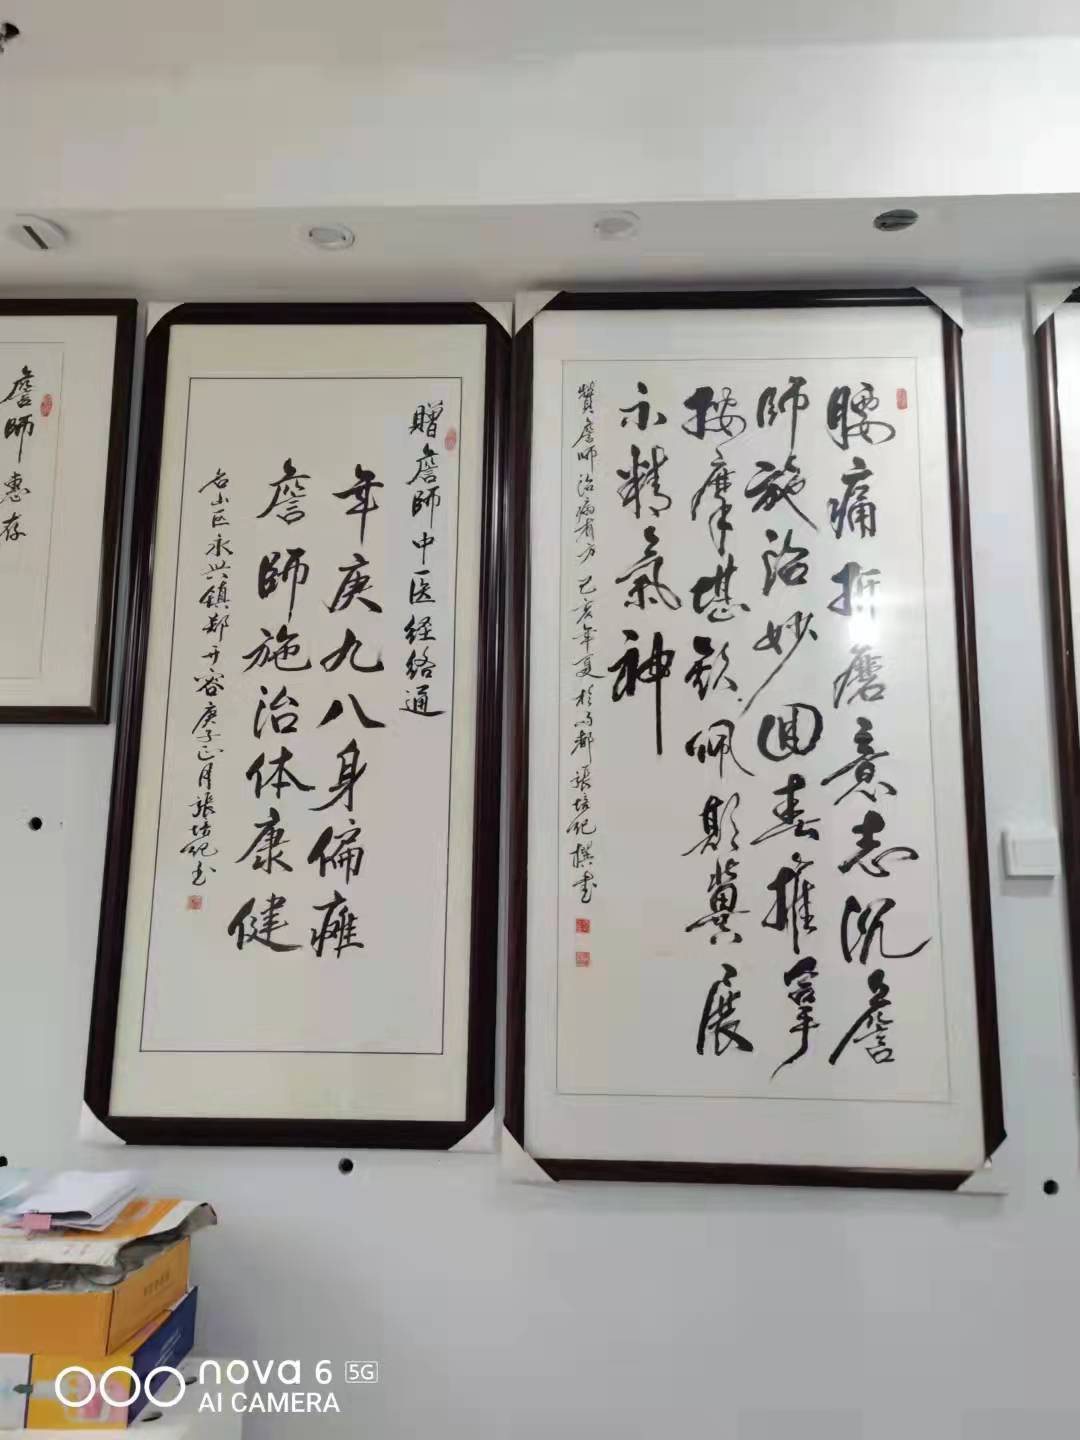 腰痛折磨意志沉詹
師施治妙回春推拿
按摩堪钦佩期冀展
示精氣神
贊詹師治病有方己亥年夏於成都張培纪撰書
贈詹師中医经络通
年庚九八身偏癱
詹師施治体康健
名山区永兴镇郑开容庚子正月張培纪书
詹師惠存
nova 6 5G
AI CAMERA